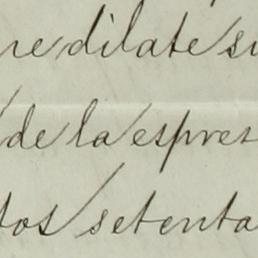 re dilate su
de la espres
tos setenta